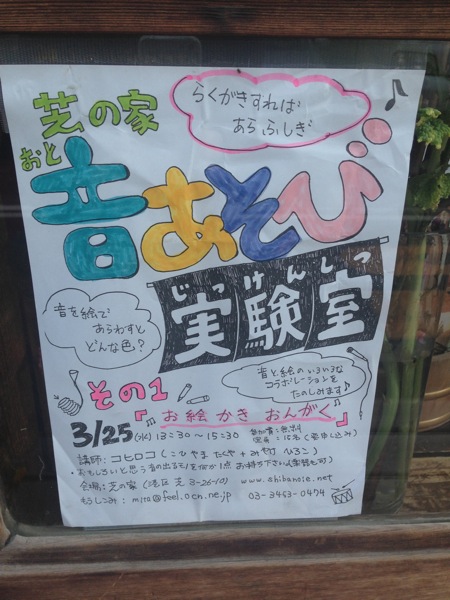 芝の家
らくがきすれば
あらふしぎ
おと
音あそび
じっけんしつ
実験室
音を絵で
あらわすと
どんな色?
音と絵のいろいろな
コラボレーションを
たのしみます♪
その1
『お絵かきおんがく』
3/25(水) 13:30~15:30
参加費:無料
定員:15名(要申し込み)
講師:コヒロコ(こひやまたくや+みやむらひろこ)
・おもしろいと思う音の出るモノを何か1点お持ち下さい(楽器も可)
会場:芝の家(港区芝3-26-10) www.shibanoie.net
もうしこみ:mita@feel.ocn.ne.jp 03-3453-0474